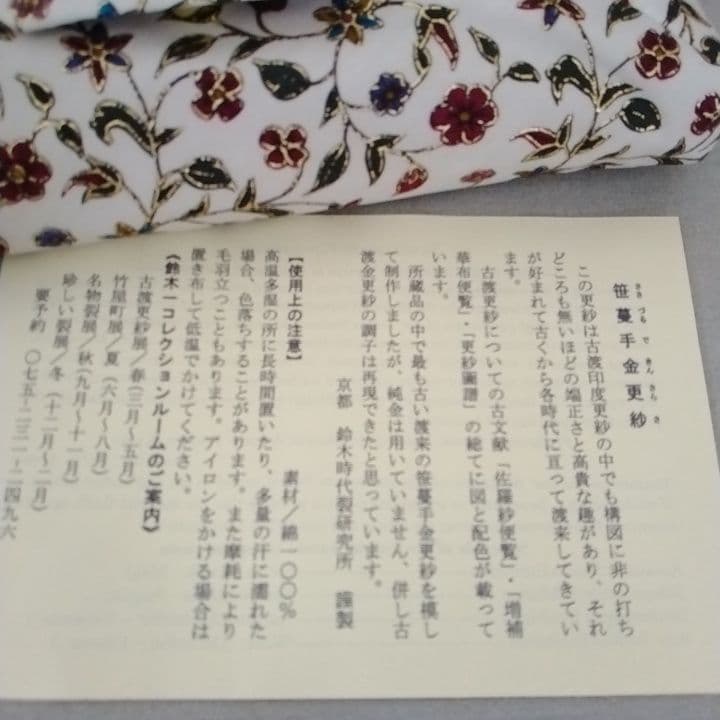 笹蔓手金更紗
ささづるできんさらさ
この更紗は古渡印度更紗の中でも構図に非の打ち
どころも無いほどの端正さと高貴な趣があり、それ
が好まれて古くから各時代に亘って渡来してきてい
ます。
古渡更紗についての古文献「佐羅紗便覧」・「増補
華布便覧」・「更紗圖譜」の総てに図と配色が載って
います。
所蔵品の中で最も古い渡来の笹蔓手金更紗を模し
て制作しましたが、純金は用いていません、併し古
渡金更紗の調子は再現できたと思っています。
京都 鈴木時代裂研究所 謹製
素材/綿一〇〇%
【使用上の注意】
高温多湿の所に長時間置いたり、多量の汗に濡れた
場合、色落ちすることがあります。また摩耗により
毛羽立つこともあります。アイロンをかける場合は
置き布して低温でかけてください。
《鈴木一コレクションルームのご案内》
古渡更紗展/春(三月〜五月)
竹屋町展/夏(六月〜八月)
名物裂展/秋(九月〜十一月)
珍しい裂展/冬(十二月〜二月)
要予約 〇七五-二三一-二四九六